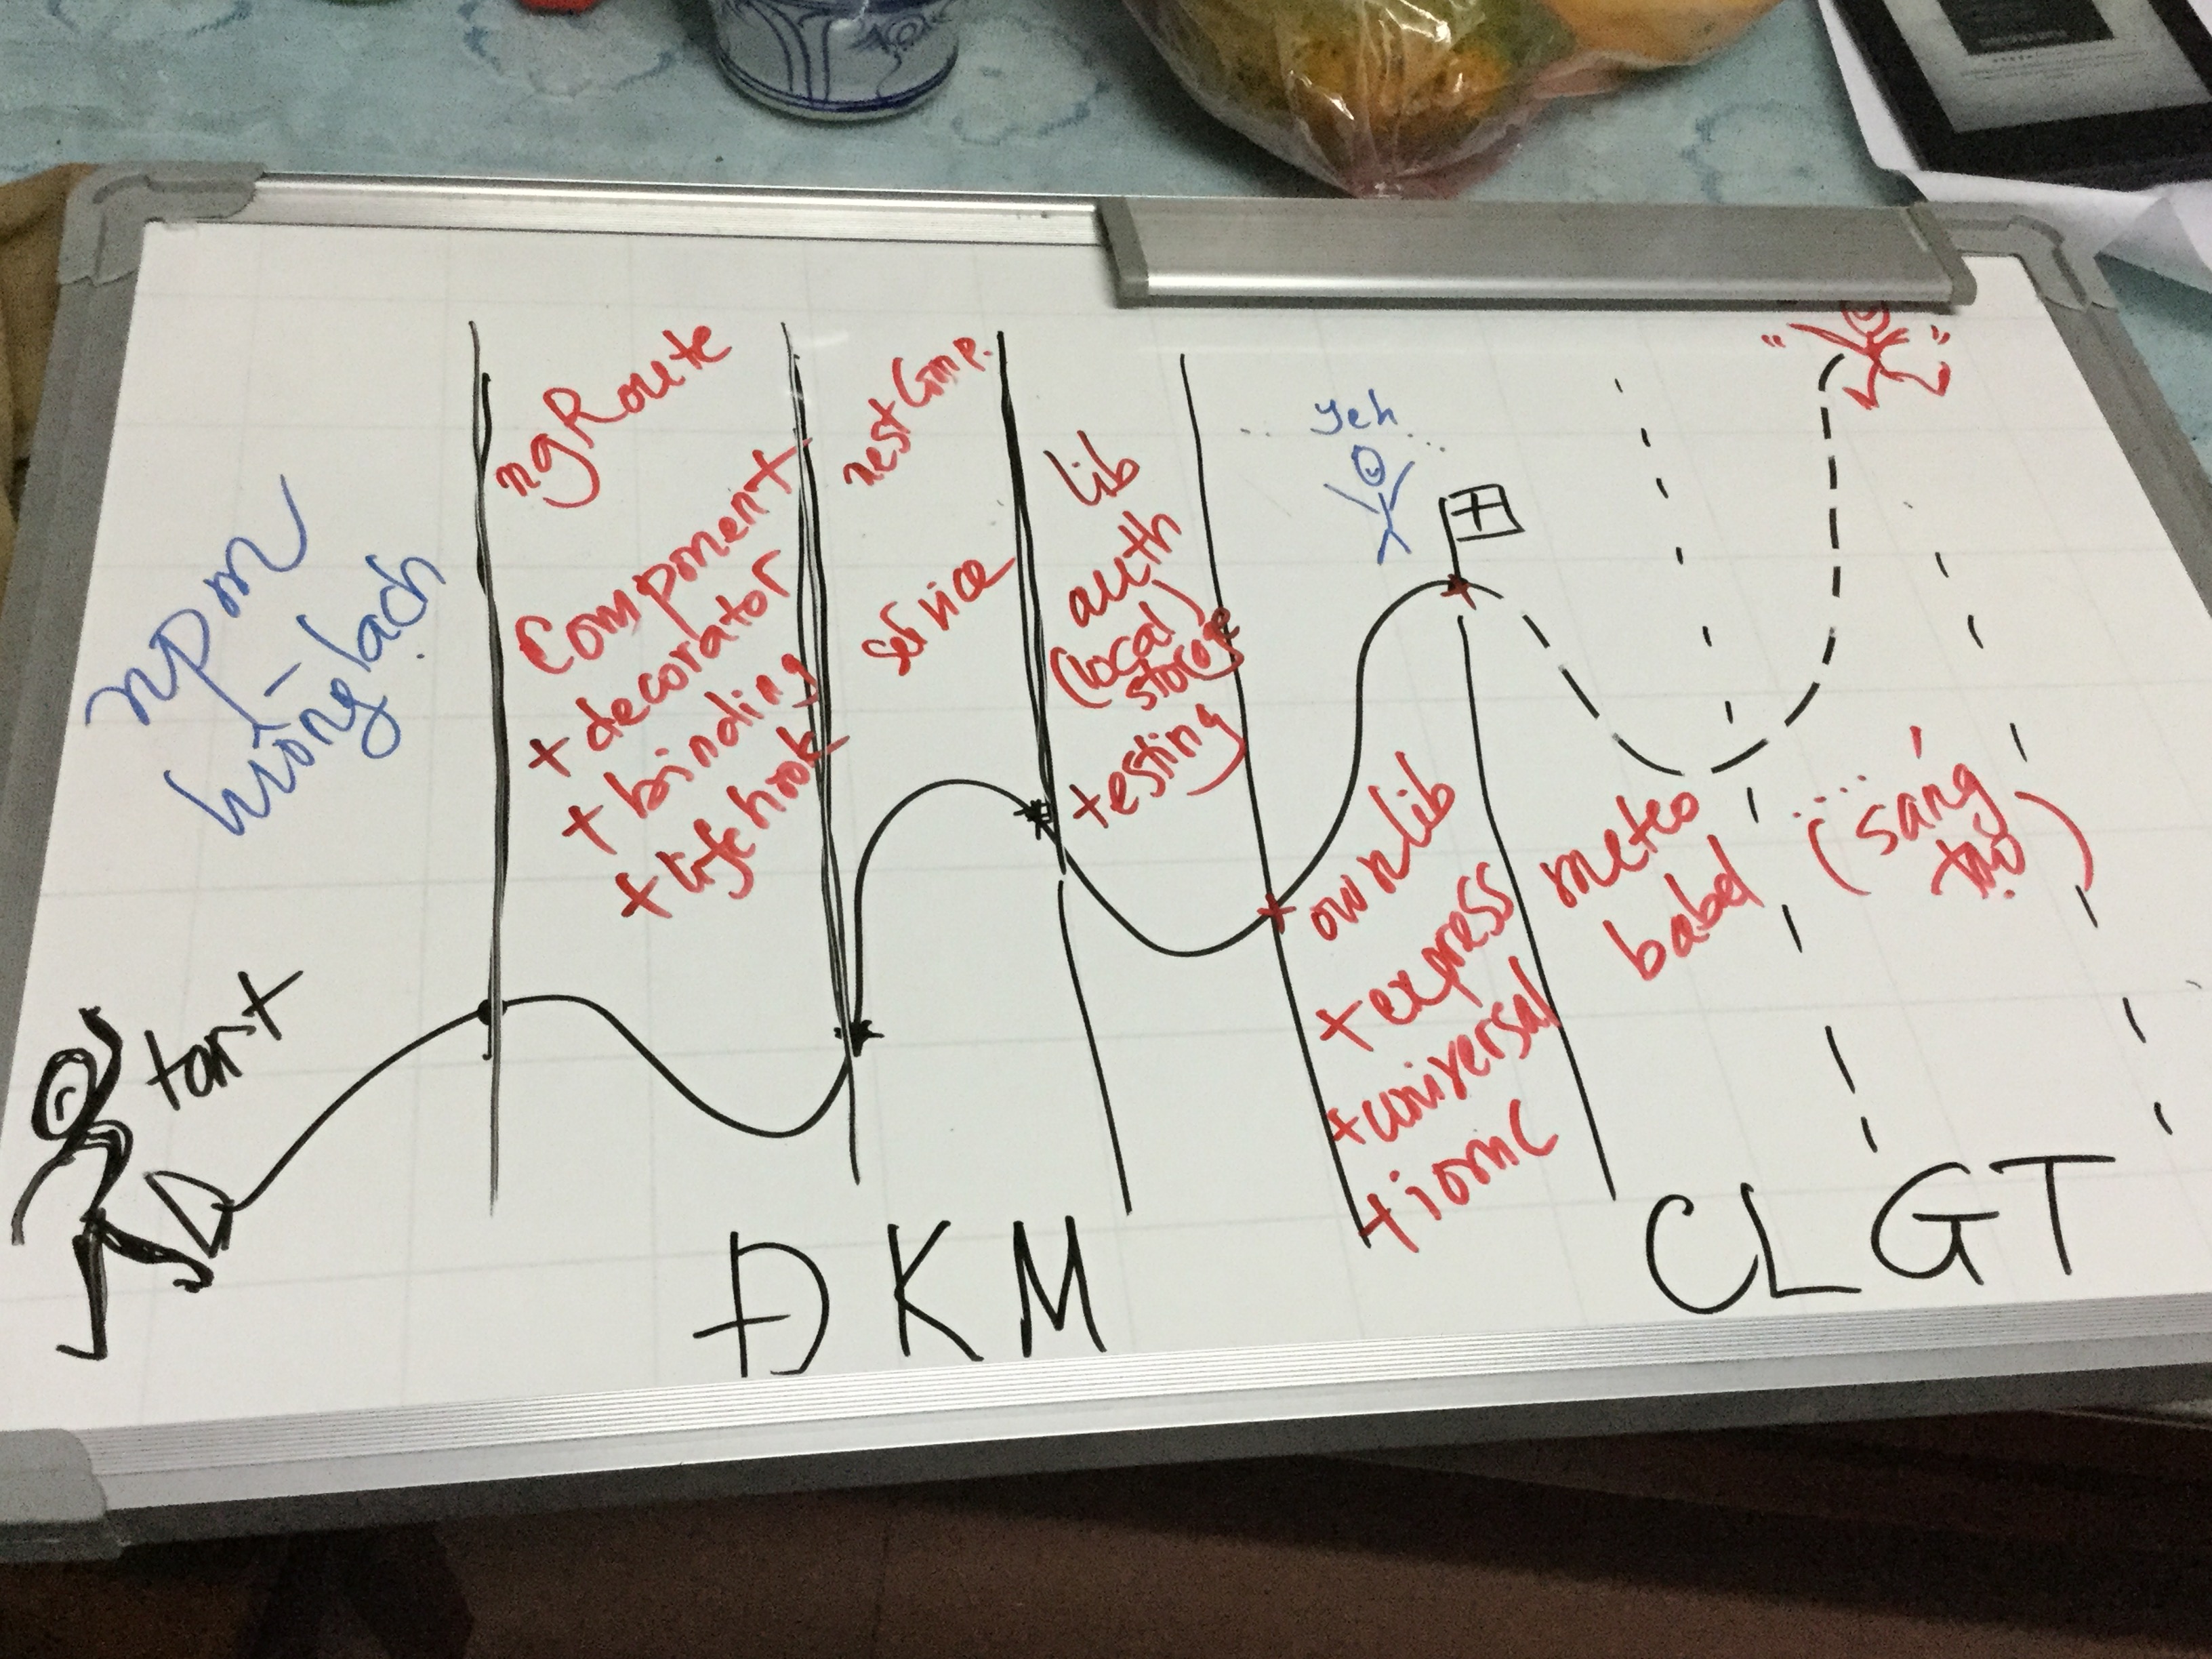 npm
tart
ngRoute
Component
+ decorator
+ binding
+ lifehook
nest Comp.
service
lib
auth
(local
storage
testing
yeh
own lib
+ express
+ universal
+ ionic
meteo
babel
(sáng
tạo)
ĐKM
CLGT